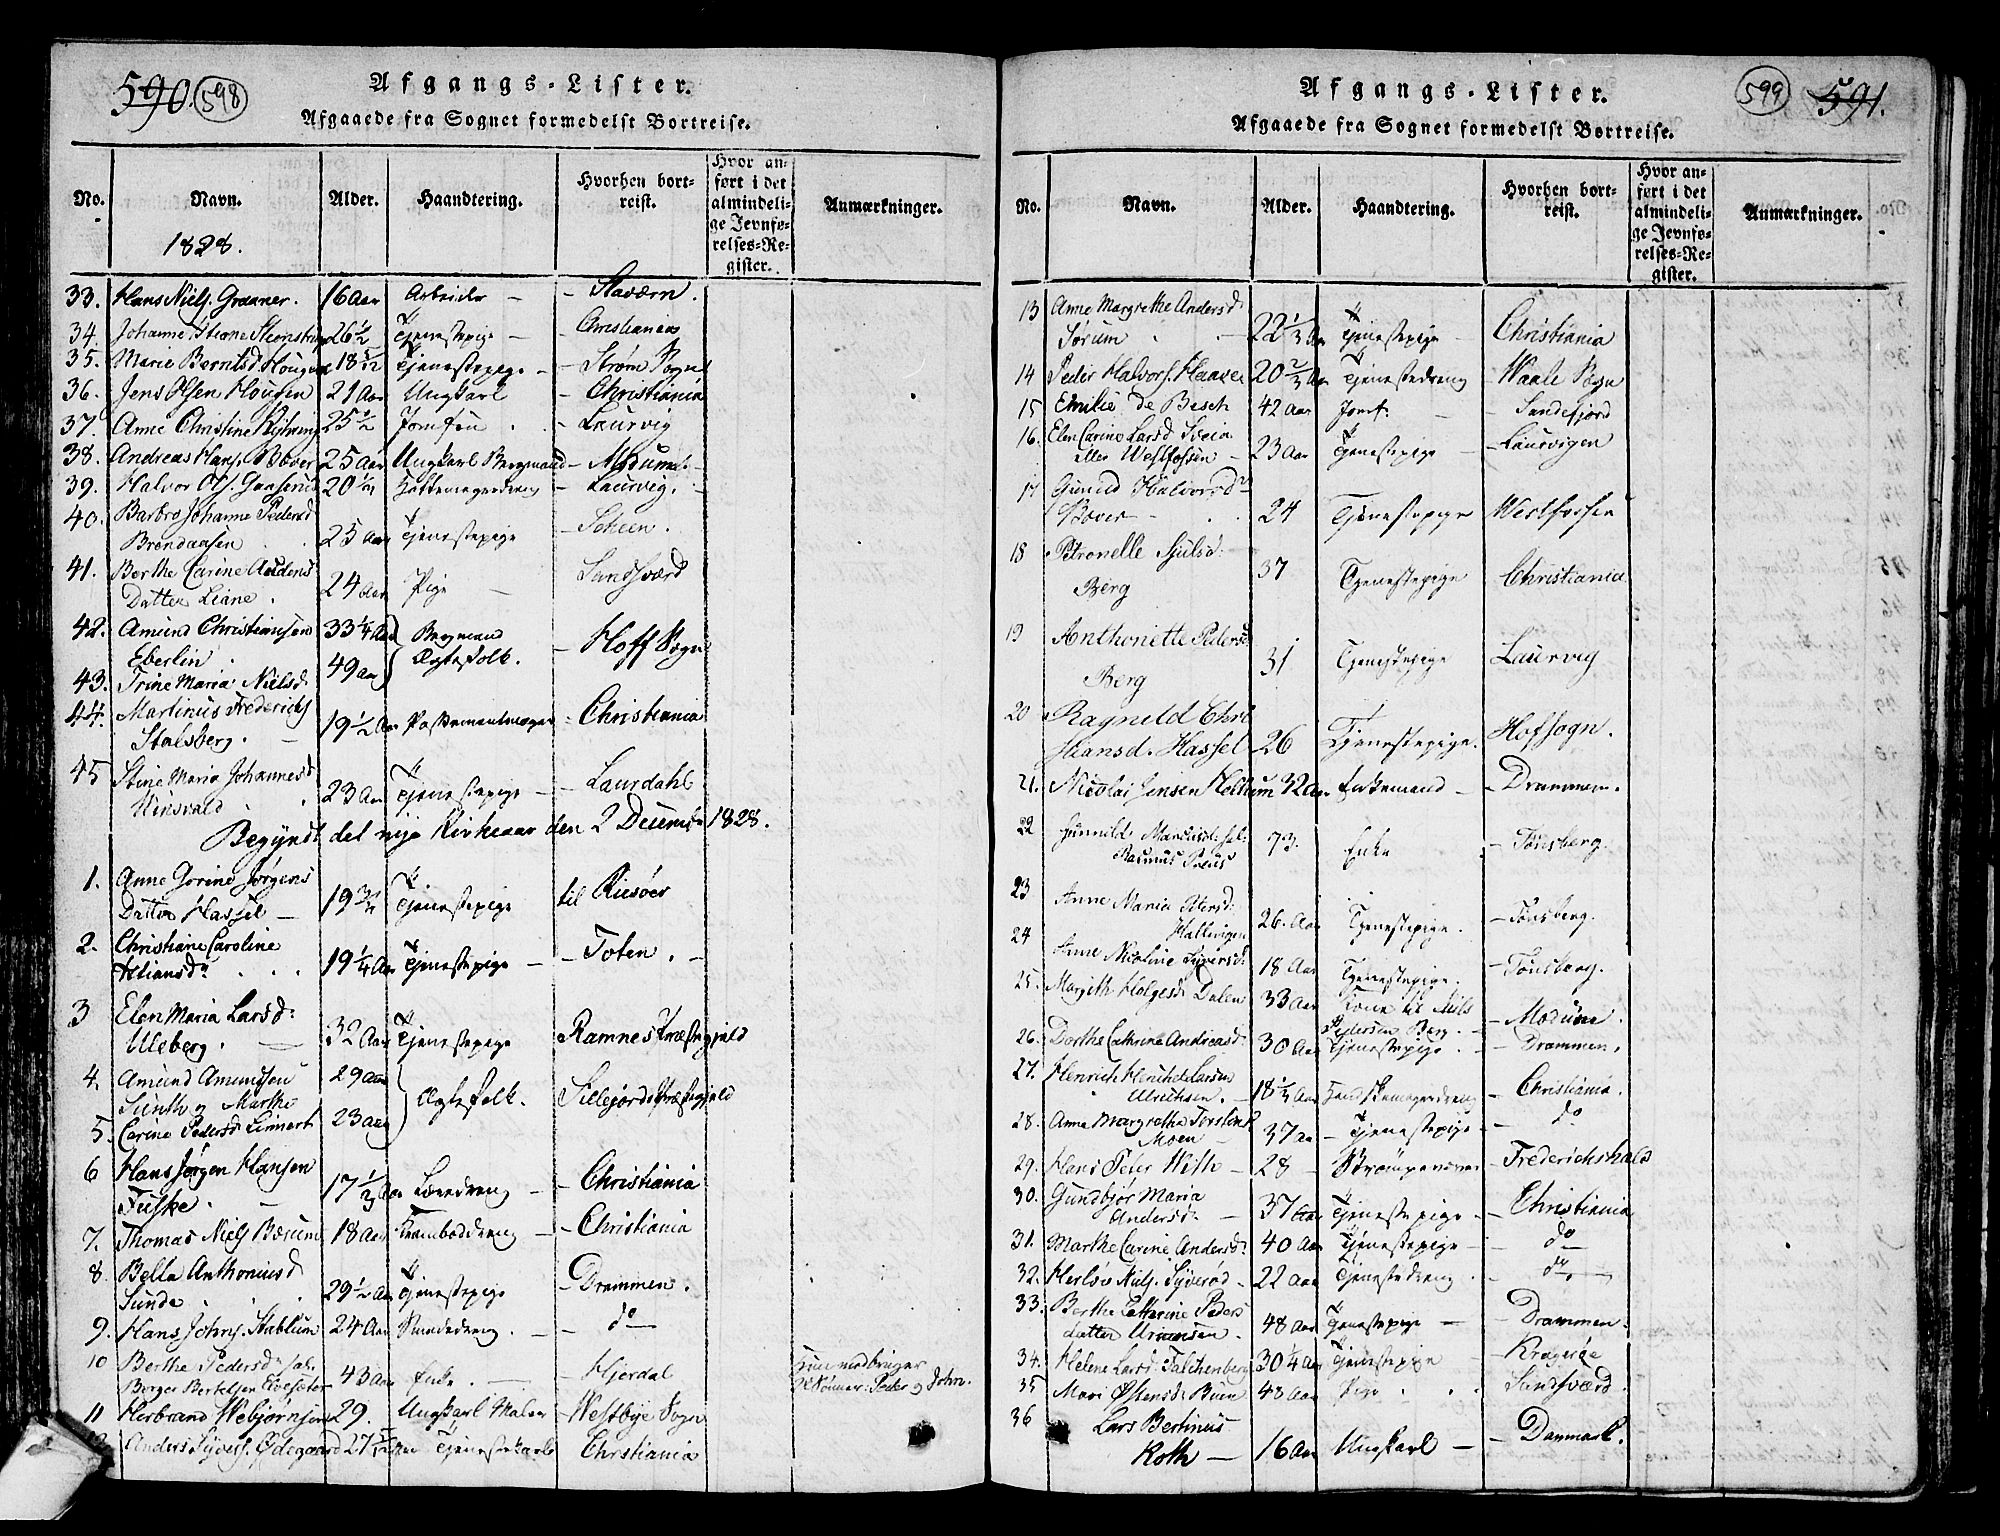 590. 598
Afgangs-Lister.
Afgaaede fra Sognet formedelst Bortreise.
No. Navn. Alder. Haandtering. Hvorhen bortreist. Hvor anført i det almindelige Jevnførelses-Register. Anmærkninger.
1828.
33. Hans Niels. Graaner. 16 Aar Arbeider — Stavern.
34. Johanne 26 1/2 Tjenestepige — Christiania
35. Marie Berntsd. 18 Tjenestepige — Strøm Sogn
36. Jens Olsen 21 Aar Ungkarl — Christiania
37. Anne Christine 25 1/2 Jomfru — Laurvig
38. Andreas Hans. Bover 25 Aar Ungkarl Bergmand — Modum
39. Halvor Ols. 20 — Laurvig.
40. Barbro Johanne Pedersd
Brendaasen 25 Aar Tjenestepige — Scheen.
41. Berthe Carine Audens
Datter Liane. 24 Aar Pige — Sandsværd
42. Amund Christiansen 33 1/4 Aar Bergmand — Hoff Sogn
Eberlin. 49 Aar Ægtefolk.
43. Trine Maria Nielsd
44. Martinus Frederichs
Stalsberg. 19 1/2 Aar — Christiania
45 Stine Maria Johannesd
23 Aar Tjenestepige — Laurdahl.
Begyndt det nye Kirkeaar den 2 Decemb 1828.
1. Anne Gorine Jørgens
Datter Hassel — 19 3/4 Tjenestepige til Riisöer
2. Christiane Caroline
19 1/4 Aar Tjenestepige — Toten.
3 Elen Maria Larsd:
Uleberg. 32 Aar Tjenestepige Ramnes Præstegjeld
4. Amund Amundsen 29 Aar
Marthe Ægtefolk. Sillejords Præstegjeld
5. Carine Pedersd Linnert 23 Aar
6 Hans Jørgen Hansen
Fuske. 17 1/3 Aar Læredreng — Christiania
7. Thomas Niels Bærum 18 Aar — Christiania
8. Bella Anthoniusd
Sunde. 29 1/2 Aar Tjenestepige — Drammen.
9. Hans Johns. Stablum 24 Aar — do
10 Berthe Pedersd sal.
Børger Bertelsen 43 Aar Enke. — Hjerdal Peder og John.
11 Herbrand Webjørnsen 29. Ungkarl Maler — Westbye Sogn
Anders Syvers. Ødegaard 27 Tjenestekarl Christiania
Afgangs-Lister. 599 591.
Afgaaede fra Sognet formedelst Bortreise.
No. Navn. Alder. Haandtering. Hvorhen bortreist. Hvor anført i det almindelige Jevnførelses-Register. Anmærkninger.
13 Anne Margrethe Andersd
Sørum 22 1/3 Aar Tjenestepige — Christiania
14 Peder Halvors. Haaven 20 2/3 Aar Tjenestedreng — Waale Sogn
15 Emilie de Besch 42 Aar Jomf: — Sandefjord
16. Elen Carine Larsd
eller Westfossen — 23 Aar Tjenestepige — Laurvigen
17 Gunild Halvorsd
Bover 24 Tjenestepige Westfossen
18 Petronelle Sjulsd:
Berg 37 Tjenestepige Christiania
19 Anthonette Peders
Berg 31 Tjenestepige Laurvig
20 Ragnild Chri
stiansd. Hassel 26 Tjenestepige. Hofsogn.
21. Nicolai Jensen Holtum 32 Aar Enkemand — Drammen.
22 Gunnild sal:
Rasmus 73. Enke — Tønsberg.
23 Anne Maria Petersd:
26. Aar Tjenestepige. — Tønsberg.
24 Anne Nicoline Syversd: 18 Aar Tjenestepige. — Tønsberg.
25. Margith Helgesd Dalen 33 Aar Kone til Niels
Pedersen Berg. — Modum.
26. Dorthe Cathrine Andreasd. 30 Aar Tjenestepige. — Drammen.
27. Henrich Larsen
Ulrichsen. 18 1/2 Aar Handskemagerdreng — Christiania.
28. Anne Margrethe Torstens
Moen 37 Aar Tjenestepige — do
29. Hans Peter With — 28 — Strømpevæver — Frederichshald
30. Gundbjør Maria
Andersd. — 37 Aar Tjenestepige — Christiania
31. Marthe Carine Andersd. 40 Aar Tjenestepige — do
32. Herlov Niels. Syverød — 22 Aar Tjenestedreng. — do
33. Berthe Cathrine Peders
datter 48 Aar Tjenestepige — Drammen.
34. Helene Larsd. Falchenberg 30 1/4 Aar Tjenestepige — Kragerøe
35 Mari Østensd. 48 Aar Pige — Sandsværd.
36 Lars Bertinus
Roth — 16 Aar Ungkarl — Danmark.